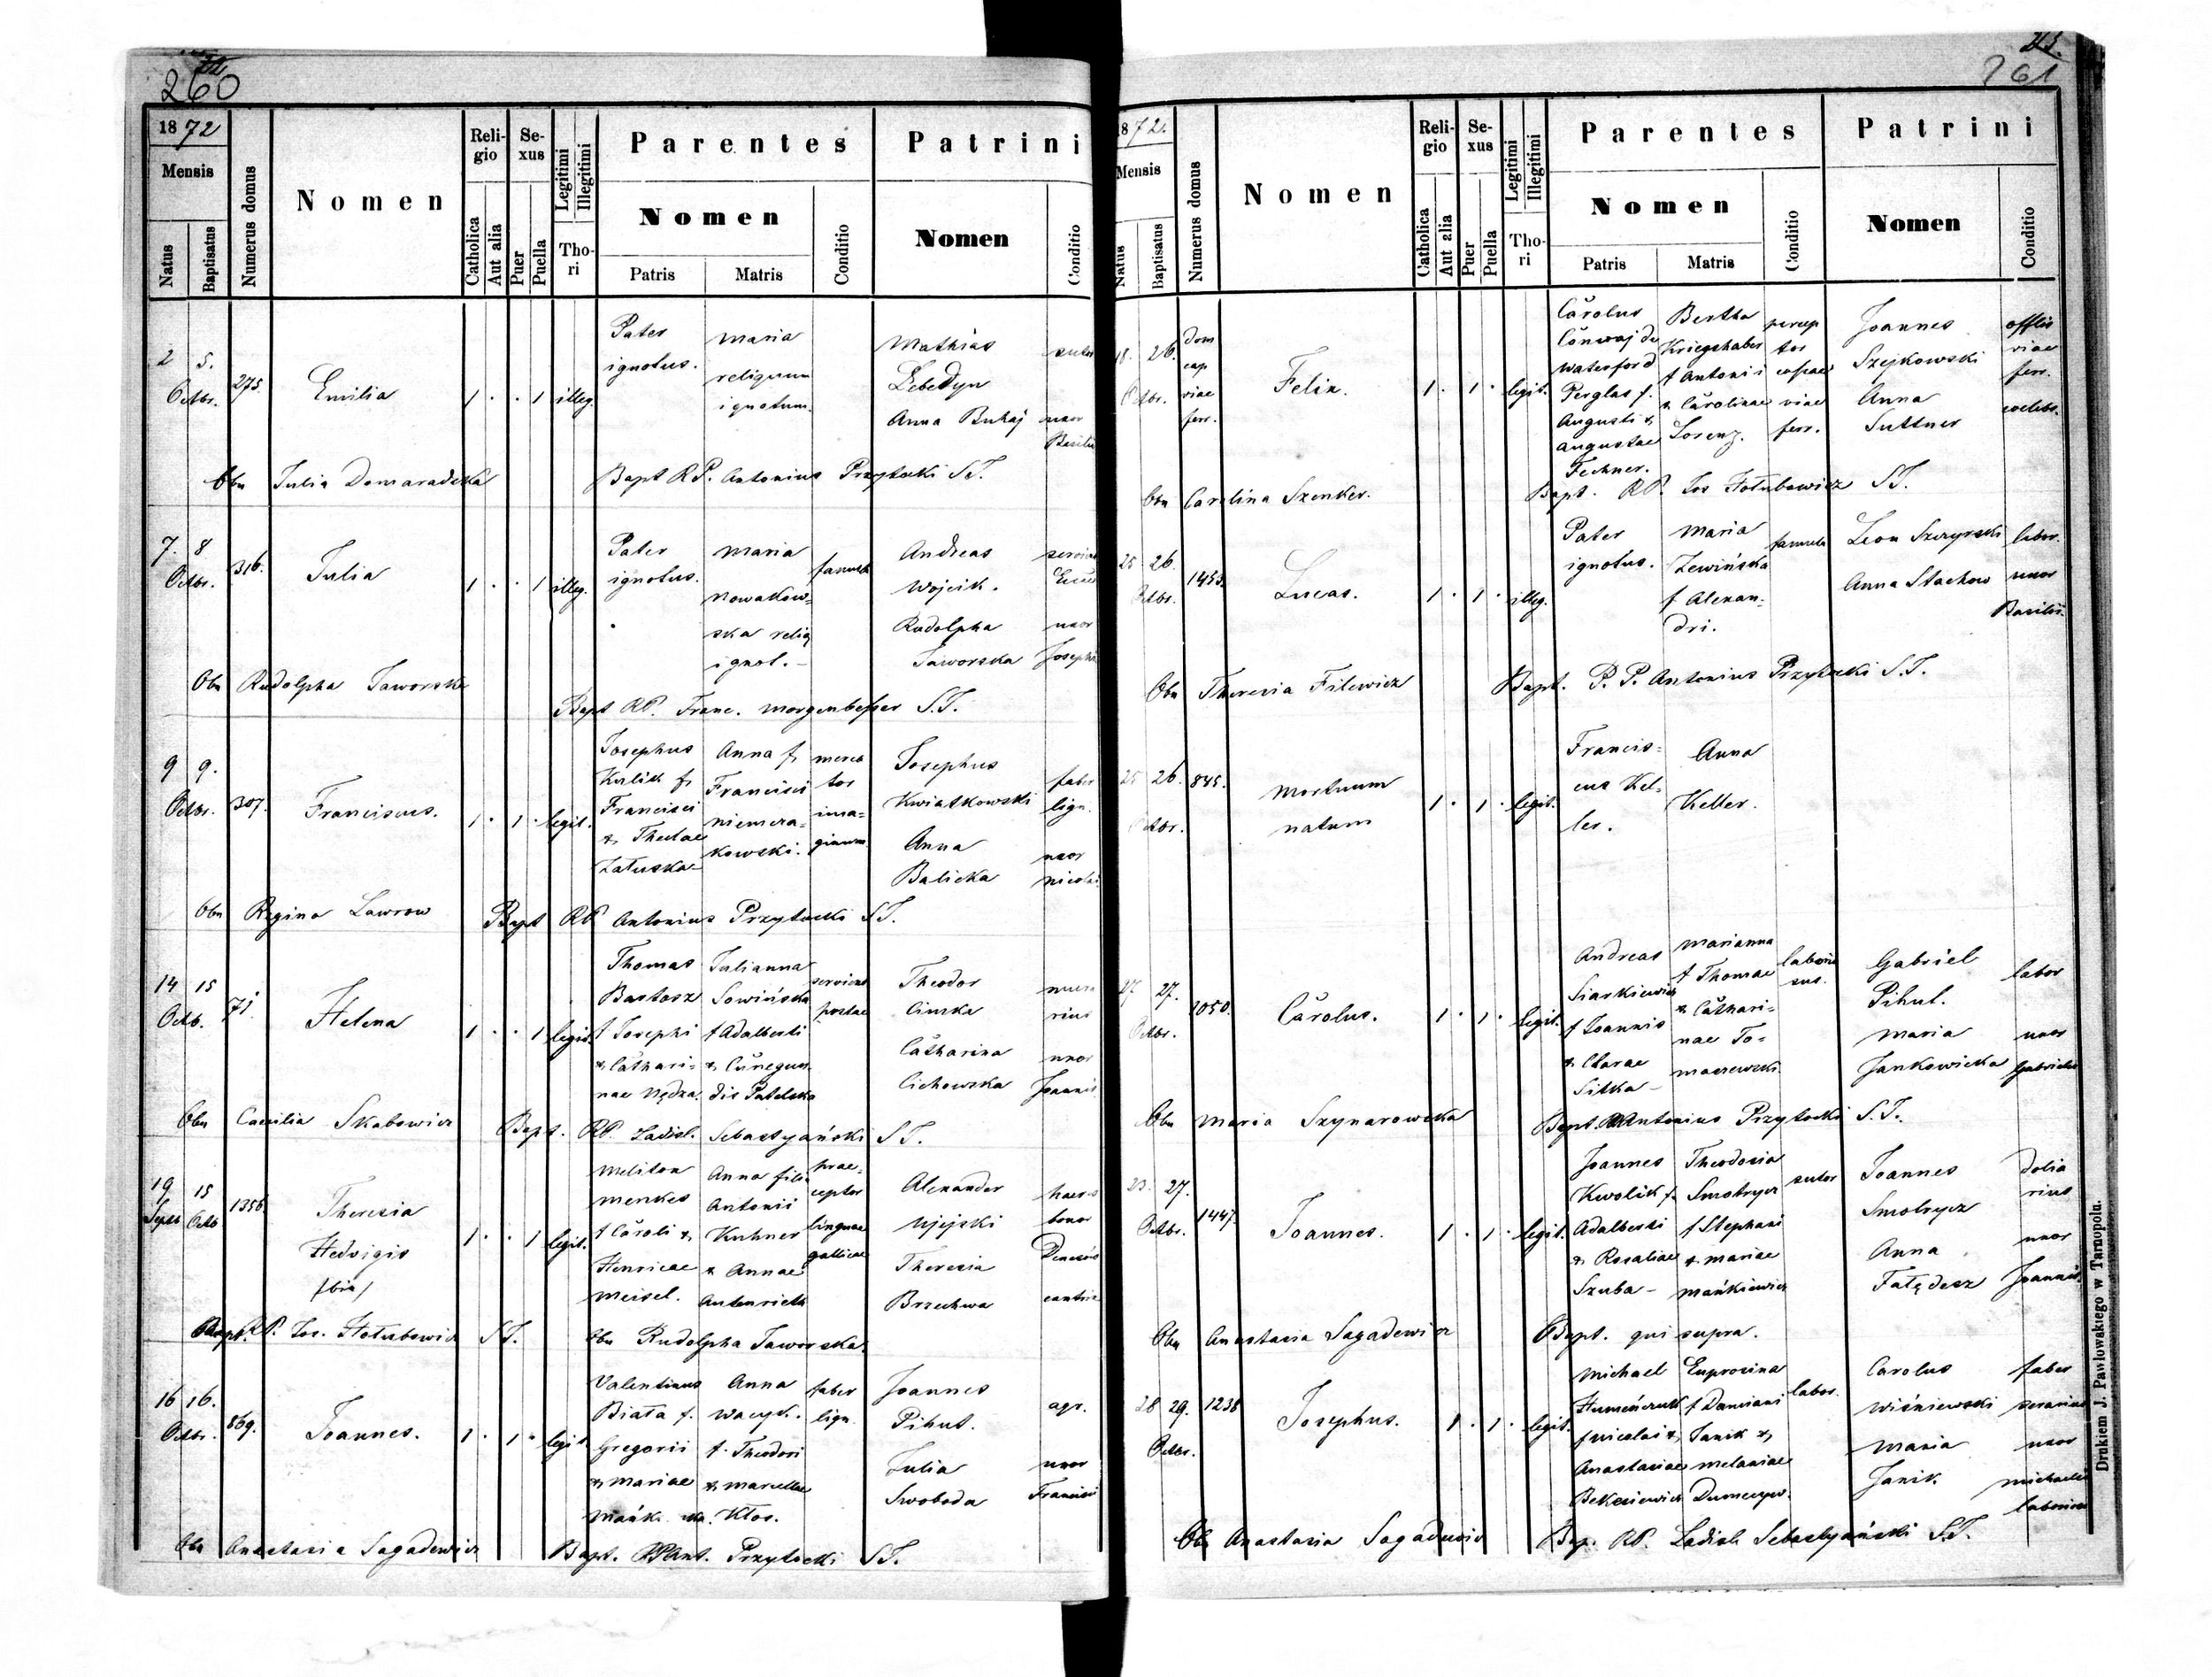 260
1872
Mensis
Natus
Baptisatus
Numerus domus
Nomen
Religio
Catholica
Aut alia
Sexus
Puer
Puella
Legitimi
Illegitimi
Thori
Parentes
Nomen
Patris
Matris
Conditio
Patrini
Nomen
Conditio
2 5.
Octbr.
275.
Emilia
1 . . 1 illeg.
Pater
ignotus.
Maria
reliquum
ignotum.
Mathias
Lebedyn
Anna Buhaj
sutor
uxor
Basilii
Obst Julia Domaradzka
Bapt RP. Antonius Przytocki S.J.
7. 8
Octbr.
316.
Julia
1 . . 1 illeg.
Pater
ignotus.
Maria
Nowakow=
ska reliq
ignot. -
famula
Andreas
Wojcik.
Rudolpha
Jaworska
uxor
Josephi
Obst Rudolpha Jaworska
Bapt RP. Franc. Morgenbesser S.J.
9 9.
Octbr.
307.
Franciscus.
1 . 1 . legit.
Josephus
Kulik f.
Francisci
& Theclae
Załuska
Anna f.
Francisci
Niemira=
kowski.
merca
tor
ima=
ginum
Josephus
Kwiatkowski
Anna
Balicka
faber
lign.
uxor
Nicolai
Obst Regina Lawrow
Bapt RP Antonius Przytocki S.J.
14 15
Octb.
71.
Helena
1 . . 1 legit.
Thomas
Bartosz
f Josephi
& Cathari=
nae Nędza.
Julianna
Sowińska
f Adalberti
& Cunegun=
dis Patelska
serviens
postae
Theodor
Cimka
Catharina
Cichowska
uxor
Joannis
Obst Caecilia Skabowicz
Bapt. RP. Ladisl. Sebastyański S.J.
19 15
Septb Octb
1356
Theresia
Hedvigis
/bin/
1 . . 1 legit.
Meliton
Menkes
f Caroli &
Henricae
Meisel.
Anna filia
Antonii
Kuhner
& Annae
Autenrieth
prae=
ceptor
linguae
gallicae
Alexander
Ujejski
Theresia
Brzechwa
haeres
bonor
Bapt. RP. Jos. Hołubowicz S.J.
Obst Rudolpha Jaworska.
16 16.
Octbr.
869.
Joannes.
1 . 1 . legit.
Valentinus
Biała f.
Gregorii
& Mariae
Anna
Wacyk.
f. Theodori
& Marcellae
Kłos.
faber
lign.
Joannes
Pihut.
Julia
Swoboda
agr.
uxor
Francisci
Obst Anastasia Sagadewicz
Bapt. RP Ant. Przytocki S.J.
261
1872.
Mensis
Natus
Baptisatus
Numerus domus
Nomen
Religio
Catholica
Aut alia
Sexus
Puer
Puella
Legitimi
Illegitimi
Thori
Parentes
Nomen
Patris
Matris
Conditio
Patrini
Nomen
Conditio
18. 26.
Octbr.
dom
cap
viae
ferr.
Felix.
1 . 1 . legit.
Carolus
Conwaj de
Waterford
Perglas f.
Augusti &
Augustae
Fechner.
Bertha
Kriegshaber
f Antonii
& Carolinae
Lorenz.
percep
tor
viae
ferr.
Joannes
Szejkowski
Anna
Suttner
viae
ferr.
coelebs.
Obst Carolina Szenker.
Bapt. RP. Jos Hołubowicz S.J.
25 26.
Octbr.
1453.
Lucas.
1 . 1 . illeg.
Pater
ignotus.
Maria
Lewińska
f Alexan=
dri.
famula
Leon Szczyrski
Anna Stachow
labor.
uxor
Basilii.
Obst Theresia Filewicz
Bapt. P. P. Antonius Przytocki S.J.
25 26.
Octbr.
845.
Mortuum
natum
1 . 1 . legit.
Francis=
cus Kel=
ler.
Anna
Keller.
27. 27.
Octbr.
1050.
Carolus.
1 . 1 . legit.
Andreas
Siarkiewicz
f Joannis
& Clarae
Sitka -
Marianna
f Thomae
& Cathari=
nae To=
maszewski.
Gabriel
Pihut.
Maria
Jankowicka
labor
uxor
Gabrielis
Obst Maria Szynarowska
Bapt. RP Antonius Przytocki S.J.
23. 27.
Octbr.
1447.
Joannes.
1 . 1 . legit.
Joannes
Kwolik f.
Adalberti
& Rosaliae
Szuba -
Theodosia
Smotrycz
f Stephani
& Mariae
Mańkiewicz
sutor
Joannes
Smotrycz
Anna
Fałędesz
dolia
rius
uxor
Joannis.
Obst Anastasia Sagadewicz
Bapt. qui supra.
28 29.
Octbr.
1238
Josephus.
1 . 1 . legit.
Michael
f Nicolai &
Anastasiae
Euprosina
f Damiani
Janik &
Melaniae
labor.
Carolus
Wiśniewski
Maria
Janik.
faber
uxor
Michaelis
Obst Anastasia Sagadewicz
Bap. RP. Ladisl Sebastyański S.J.
Drukiem J. Pawłowskiego w Tarnopolu.